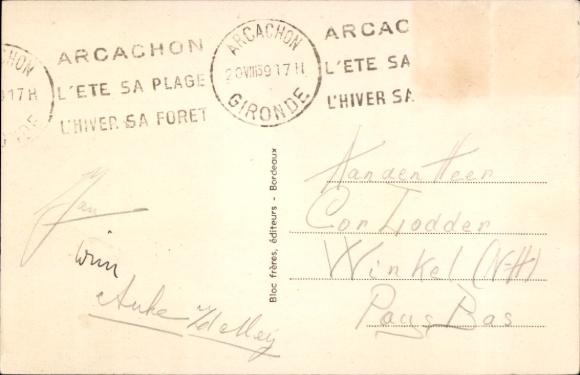 ARCACHON
L'ETE SA PLAGE
L'HIVER SA FORET
CHON
9 17 H
DE
ARCACHON
20 VIII 59 17 H
GIRONDE
ARCAC
L'ETE SA
L'HIVER SA
Bloc frères, éditeurs - Bordeaux
Jan
Wim
Anke
Aan den Heer
Cor Lodder
Winkel (N-H)
Pays Bas